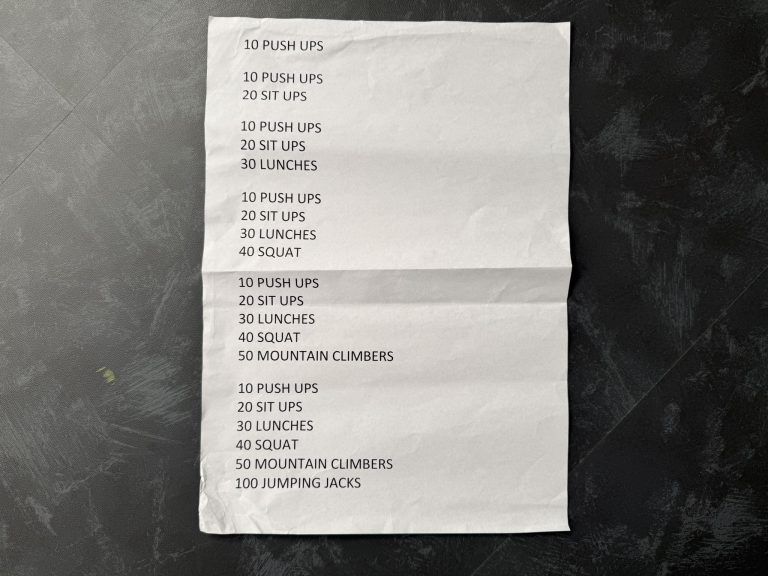 10 PUSH UPS
10 PUSH UPS
20 SIT UPS
10 PUSH UPS
20 SIT UPS
30 LUNCHES
10 PUSH UPS
20 SIT UPS
30 LUNCHES
40 SQUAT
10 PUSH UPS
20 SIT UPS
30 LUNCHES
40 SQUAT
50 MOUNTAIN CLIMBERS
10 PUSH UPS
20 SIT UPS
30 LUNCHES
40 SQUAT
50 MOUNTAIN CLIMBERS
100 JUMPING JACKS